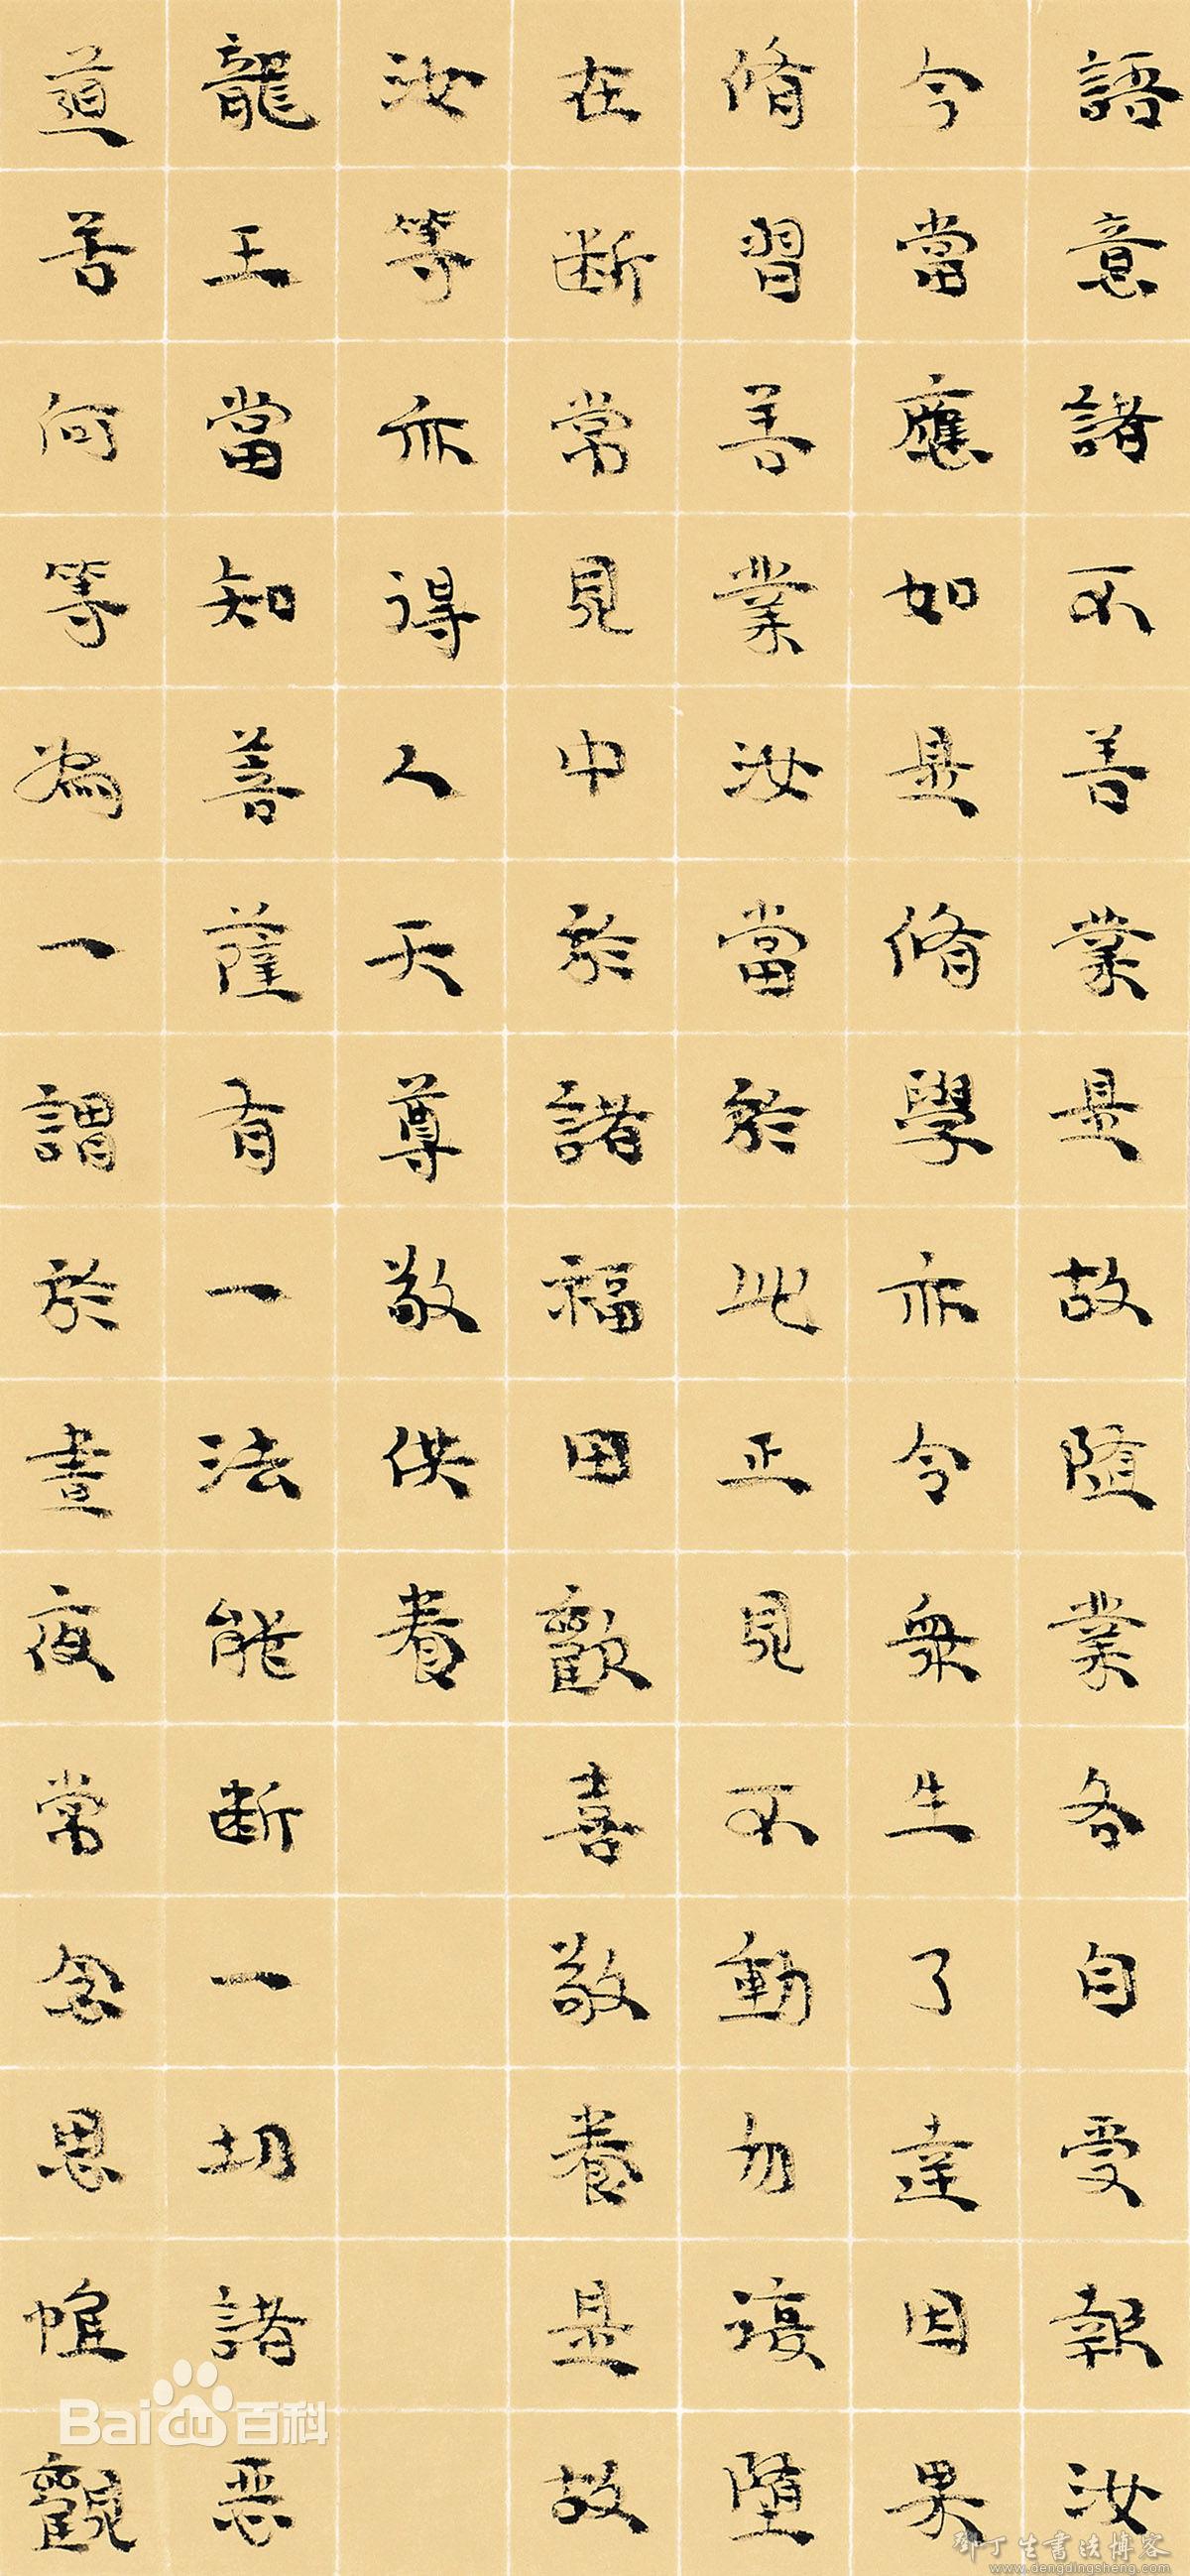 語意諸不善業是故隨業各自受報汝
今當應如是脩學亦令衆生了達因果
脩習善業汝當於此正見不動勿復墮
在斷常見中於諸福田歡喜敬養是故
汝等亦得人天尊敬供養
龍王當知菩薩有一法能斷一切諸惡
道苦何等為一謂於晝夜常念思惟觀
Baidu百科
鄧丁生書法博客
www.dengdingsheng.com